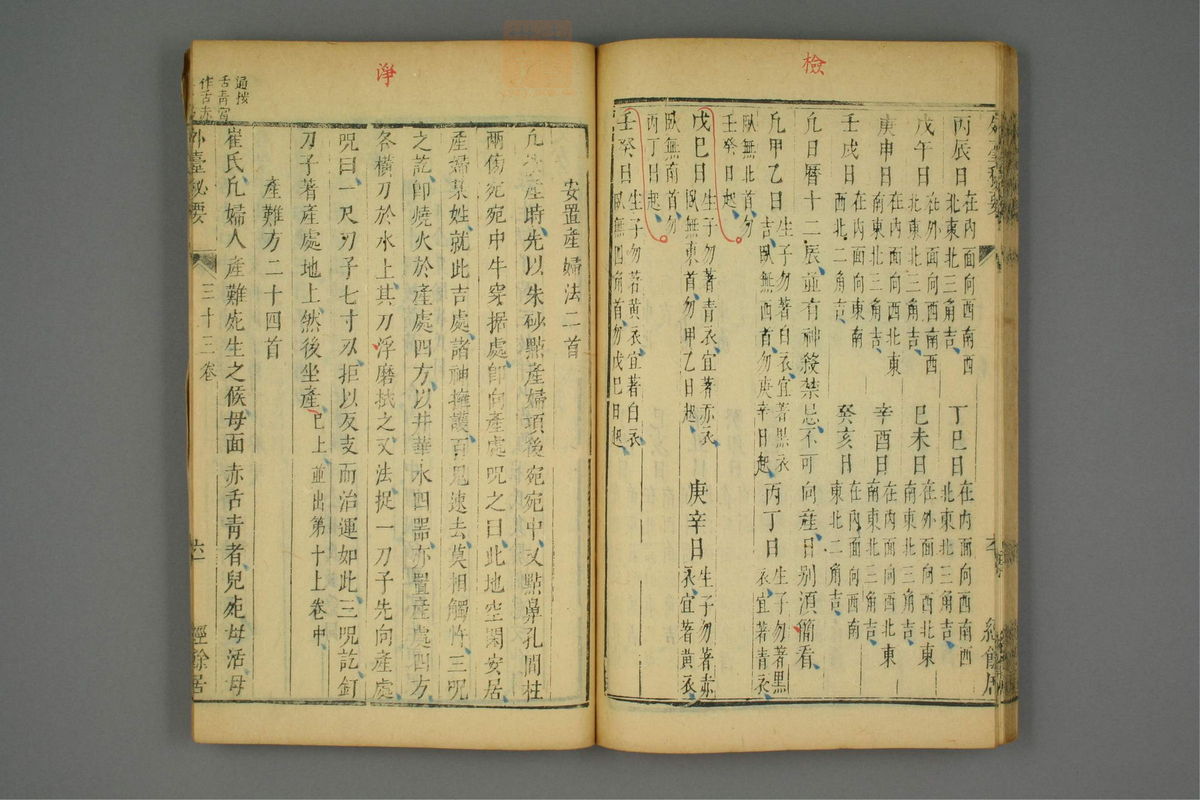 檢
丙辰日在内面向西南西北東北三角吉丁巳日在内面向西南西北東北三角吉
戊午日在外面向西南西北東北三角吉巳未日在外面向西北東南東北三角吉
庚申日在内面向西北東南東北三角吉辛酉日在内面向西北東南東北三角吉
壬戌日在内面向東南西北二角吉癸亥日在内面向西南東北二角吉
凢日曆十二辰並有神殺禁忌不可向産日别須簡看
凢甲乙日生子勿著白衣宜著黒衣吉卧無西首勿庚辛日起丙丁日生子勿著黒衣宜著青衣
卧無北首勿壬癸日起
戊巳日生子勿著青衣宜著赤衣卧無東首勿甲乙日起庚辛日生子勿著赤衣宜著黄衣
卧無南首勿丙丁日起
壬癸日生子勿著黄衣宜著白衣卧無四角首勿戊巳日起
淨
安置産婦法二首
産時先以朱砂點産婦頂後宛宛中又點鼻孔間柱
兩傷宛宛中牛穿據處卽向産處呪之曰此地空閑安居
産婦某姓就此吉處諸神擁護百鬼速去莫相觸忤三呪
之訖卽燒火於産處四方以井華水四器亦置産處四方
各橫刀於水上其刀浮磨拭之又法捉一刀子先向産處
呪曰一尺刀子七寸刃拒以友支而治運如此三呪訖釘
刀子著産處地上然後坐産巳上並出第十上卷中
産難方二十四首
崔氏凢婦人産難死生之候母面赤舌青者兒死母活母
外臺秘要 三十三卷 六一 經餘居
過按
舌青宜
作舌赤